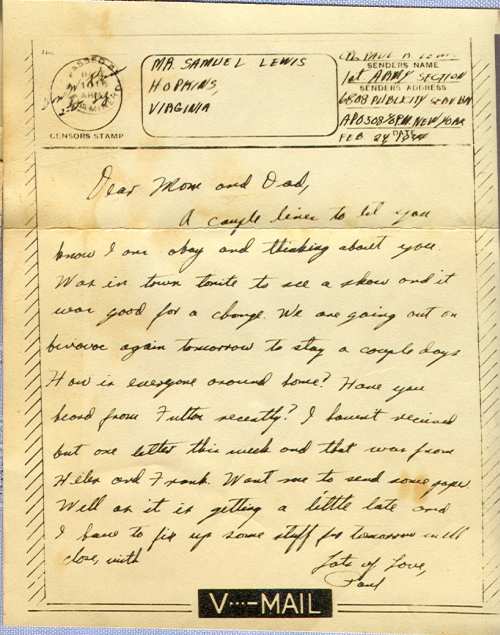 PASSED BY
MR. SAMUEL LEWIS
HOPKINS,
VIRGINIA
CENSORS STAMP
PAUL LEWIS
SENDERS NAME
1st ARMY SECTION
SENDERS ADDRESS
APO 308 NEW YORK
DATE
FEB 24 1944
Dear Mom and Dad,
A couple lines to let you
know I am okay and thinking about you.
Was in town tonite to see a show and it
was good for a change. We are going out on
bivouac again tomorrow to stay a couple days
How is everyone around home? Have you
heard from recently? I havent recieved
but one letter this week and that was from
Helen and Frank. Want me to send some paper
Well as it is getting a little late and
I have to fix up some stuff for tomorrow will
close, with
Lots of Love,
Paul
V···–MAIL